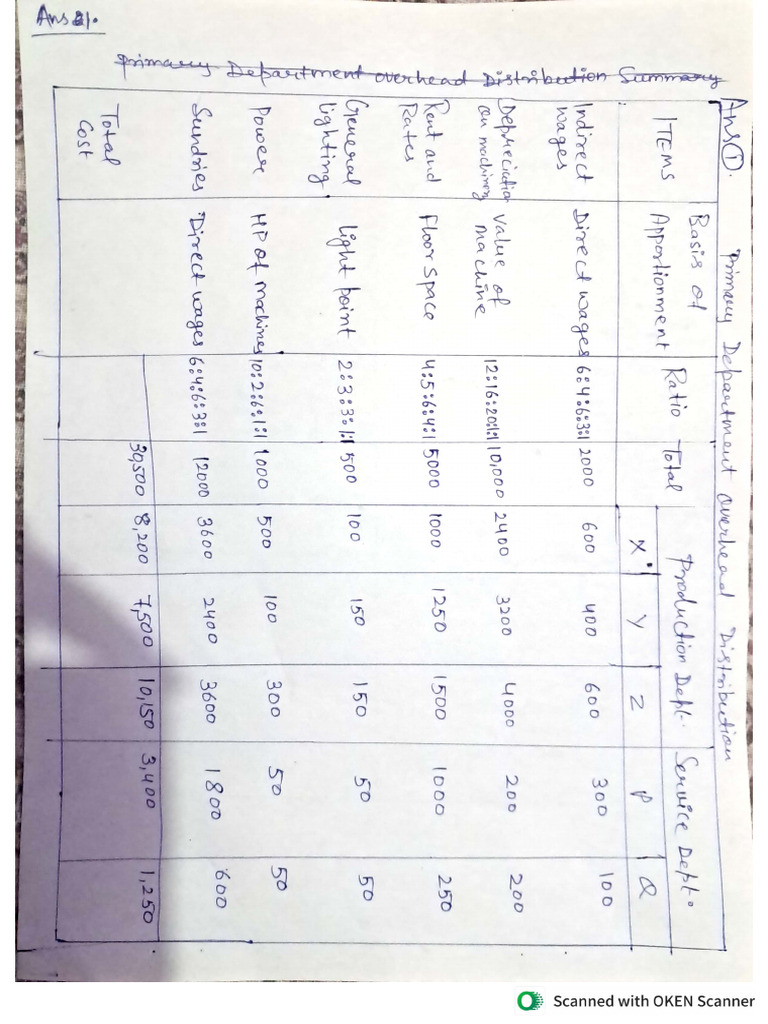 Ans 21.
Primary Department overhead Distribution Summary
Ans ①. Primary Department overhead Distribution
ITEMS Basis of Apportionment Ratio Total Production Dept. Service Dept.
X Y Z P Q
Indirect wages Direct wages 6:4:6:3:1 2000 600 400 600 300 100
Depreciation on machinery Value of machine 12:16:20:1:1 10,000 2400 3200 4000 200 200
Rent and Rates Floor space 4:5:6:4:1 5000 1000 1250 1500 1000 250
General lighting light point 2:3:3:1:1 500 100 150 150 50 50
Power HP of machines 10:2:6:1:1 1000 500 100 300 50 50
Sundries Direct wages 6:4:6:3:1 12000 3600 2400 3600 1800 600
Total Cost 30,500 8,200 7,500 10,150 3,400 1,250
Scanned with OKEN Scanner